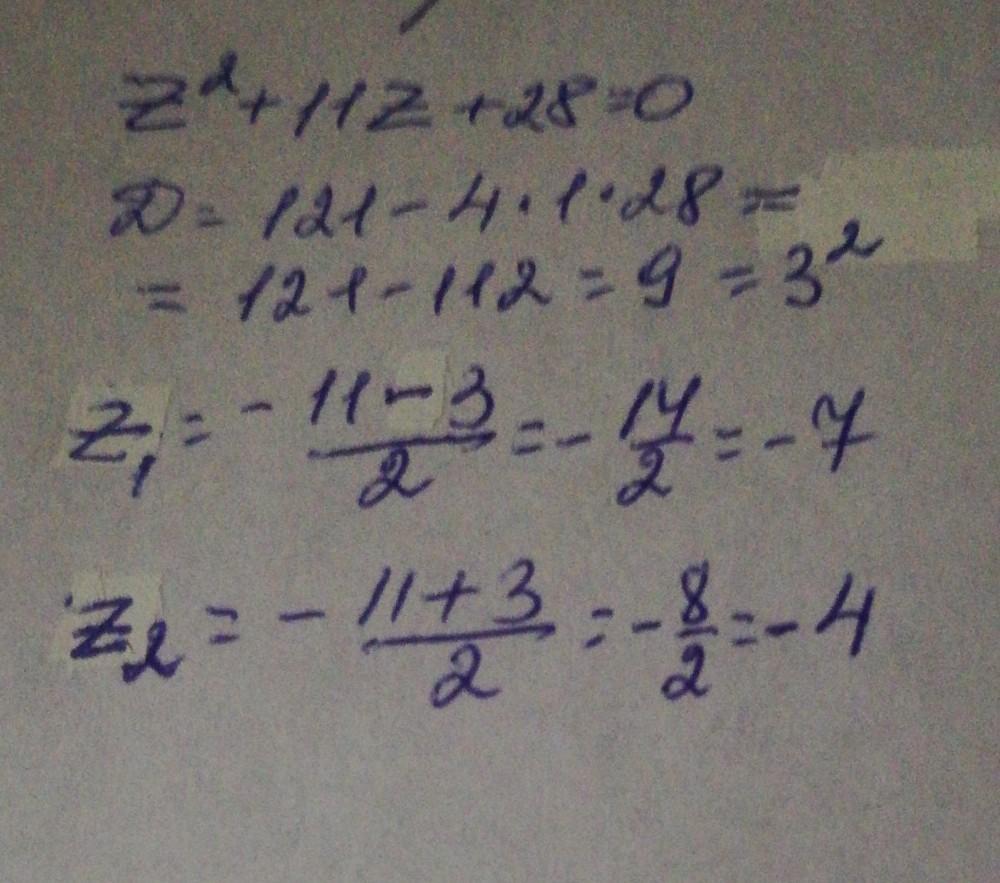 z² + 11z + 28 = 0
D = 121 - 4 · 1 · 28 =
= 121 - 112 = 9 = 3²
z₁ = - (11 - 3)/2 = - 14/2 = - 7
z₂ = - (11 + 3)/2 = - 8/2 = - 4